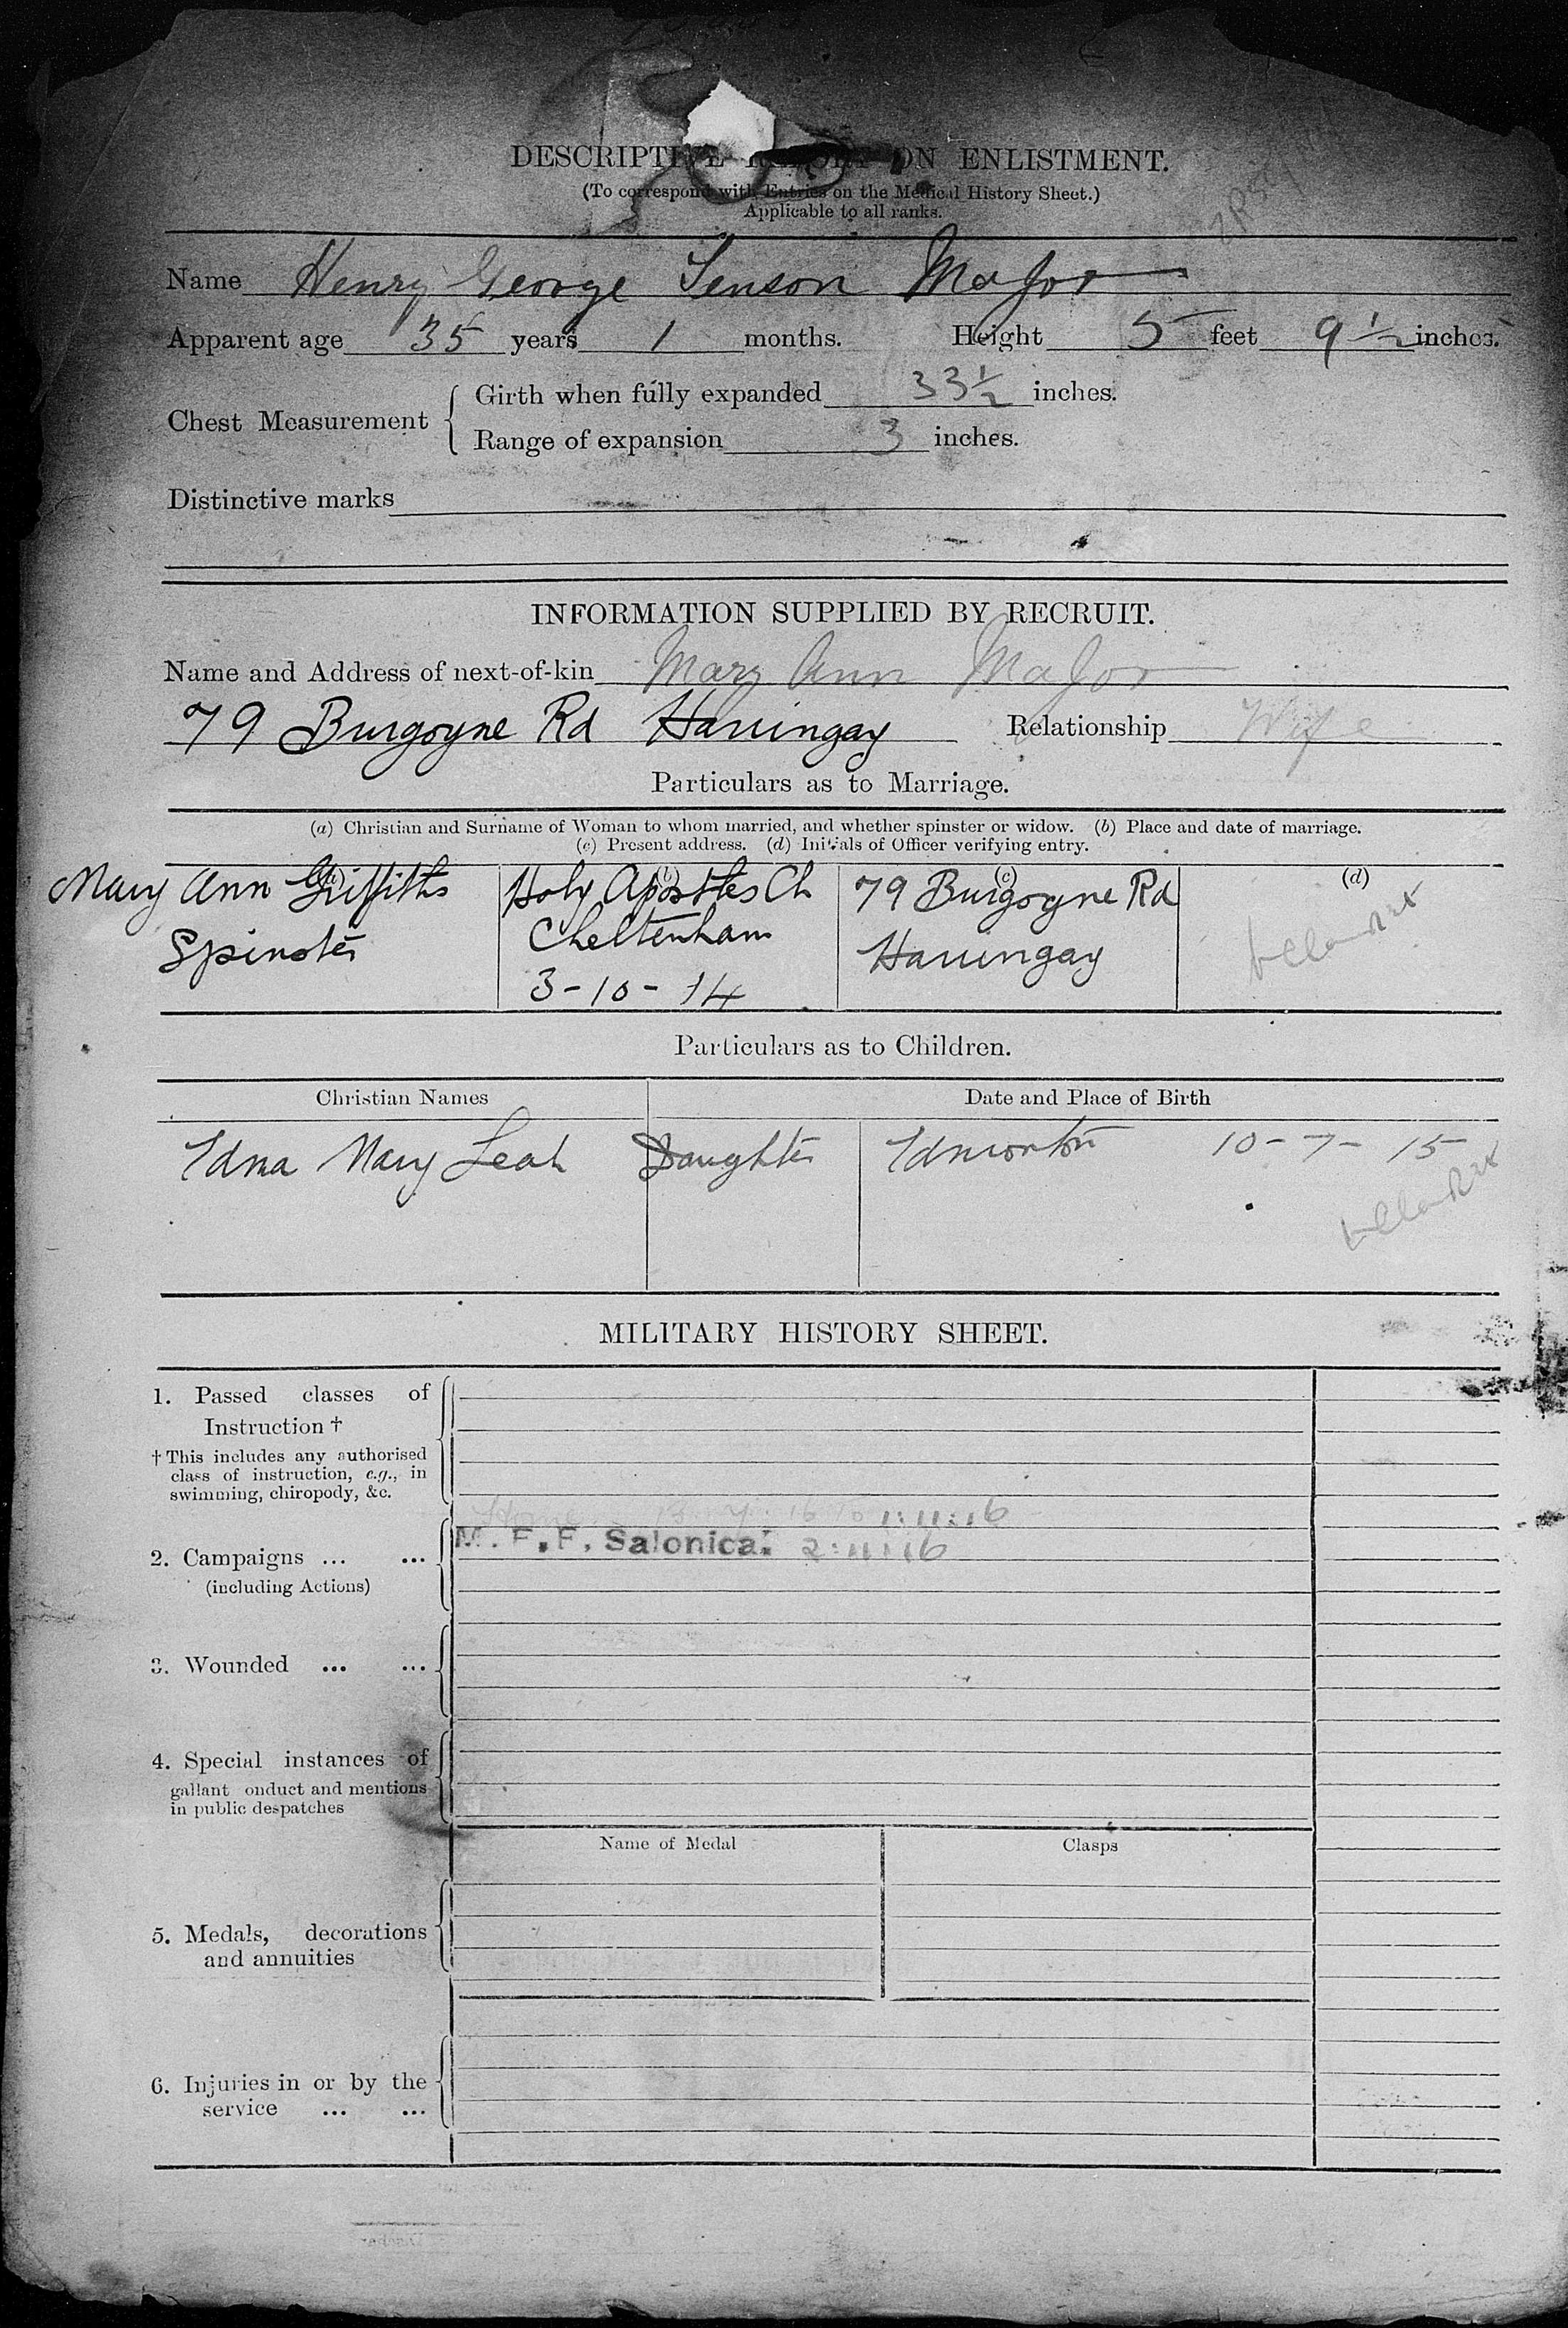 DESCRIPTIVE REPORT ON ENLISTMENT.
(To correspond with Entries on the Medical History Sheet.)
Applicable to all ranks.
Name Henry George Senson Major
Apparent age 35 years 1 months. Height 5 feet 9 1/2 inches.
Chest Measurement { Girth when fully expanded 33 1/2 inches.
Range of expansion 3 inches.
Distinctive marks
INFORMATION SUPPLIED BY RECRUIT.
Name and Address of next-of-kin Mary Ann Major
79 Burgoyne Rd Harringay Relationship Wife
Particulars as to Marriage.
(a) Christian and Surname of Woman to whom married, and whether spinster or widow. (b) Place and date of marriage.
(c) Present address. (d) Initials of Officer verifying entry.
(a) (b) (c) (d)
Mary Ann Griffiths Holy Apostles Ch 79 Burgoyne Rd
Spinster Cheltenham Harringay
3-10-14
Particulars as to Children.
Christian Names Date and Place of Birth
Edna Mary Leah Daughter Edmonton 10-7-15
MILITARY HISTORY SHEET.
1. Passed classes of
Instruction †
† This includes any authorised
class of instruction, e.g., in
swimming, chiropody, &c.
Home 16 to 1:11:16
M.F.F. Salonica: 2:11:16
2. Campaigns ... ...
(including Actions)
3. Wounded ... ...
4. Special instances of
gallant onduct and mentions
in public despatches
Name of Medal Clasps
5. Medals, decorations
and annuities
6. Injuries in or by the
service ... ...